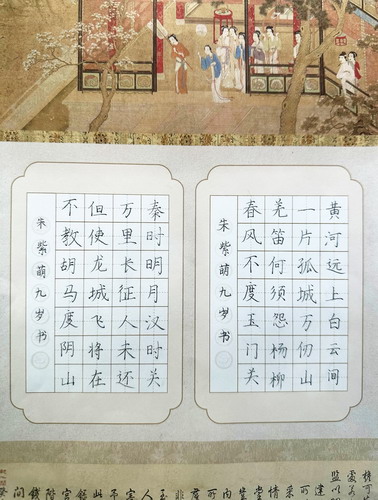 黄河远上白云间
一片孤城万仞山
羌笛何须怨杨柳
春风不度玉门关
朱紫萌九岁书
秦时明月汉时关
万里长征人未还
但使龙城飞将在
不教胡马度阴山
朱紫萌九岁书